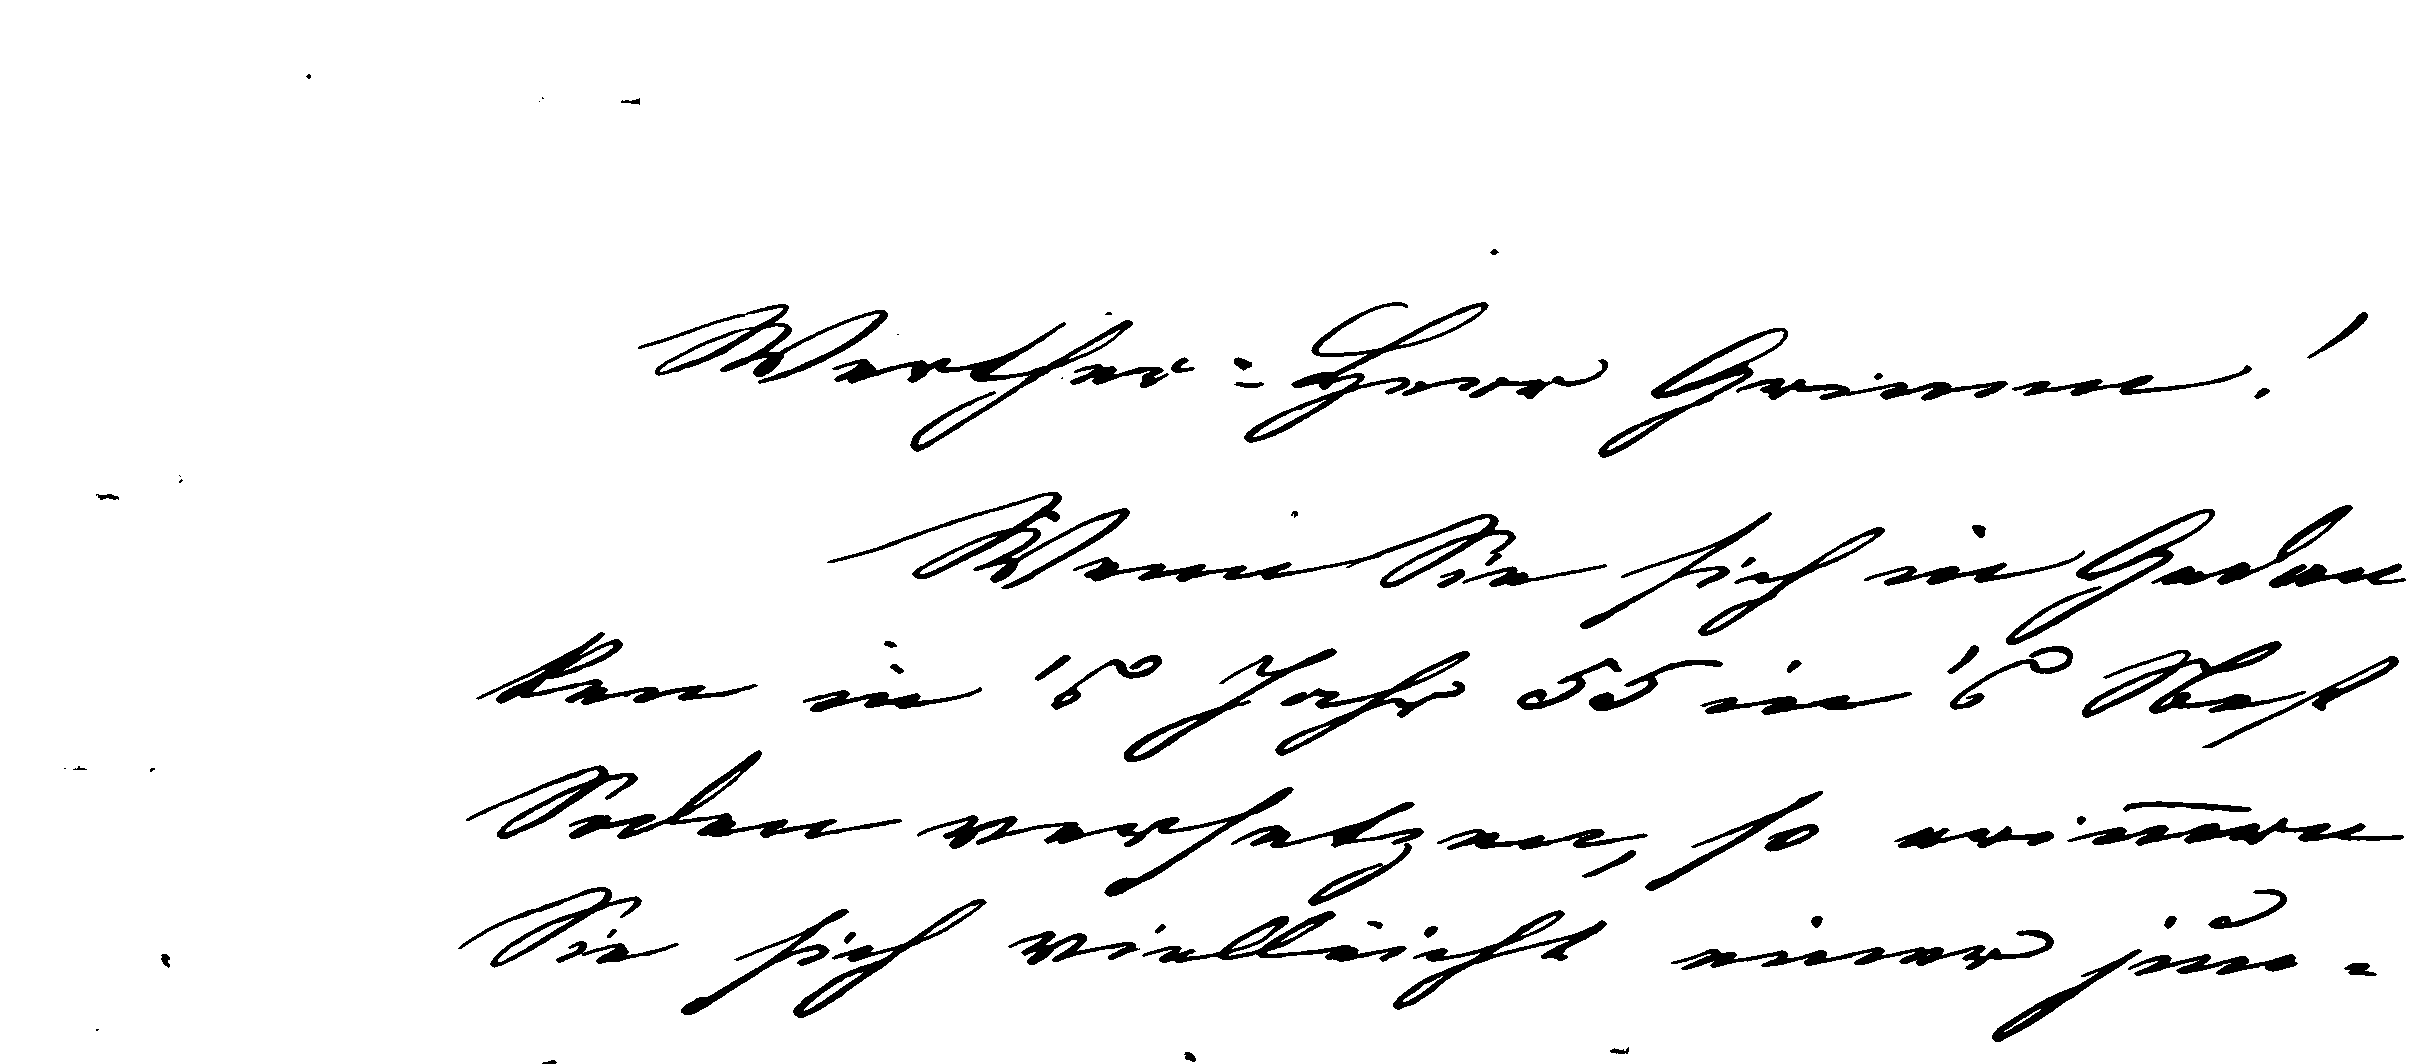 Werther = Herr Grimm!
Wenn Sie sich in Gedan
ken in 's Jahr 55 in 's Nest
Soden versetzen, so erin̄ern
Sie sich vielleicht einer jun-